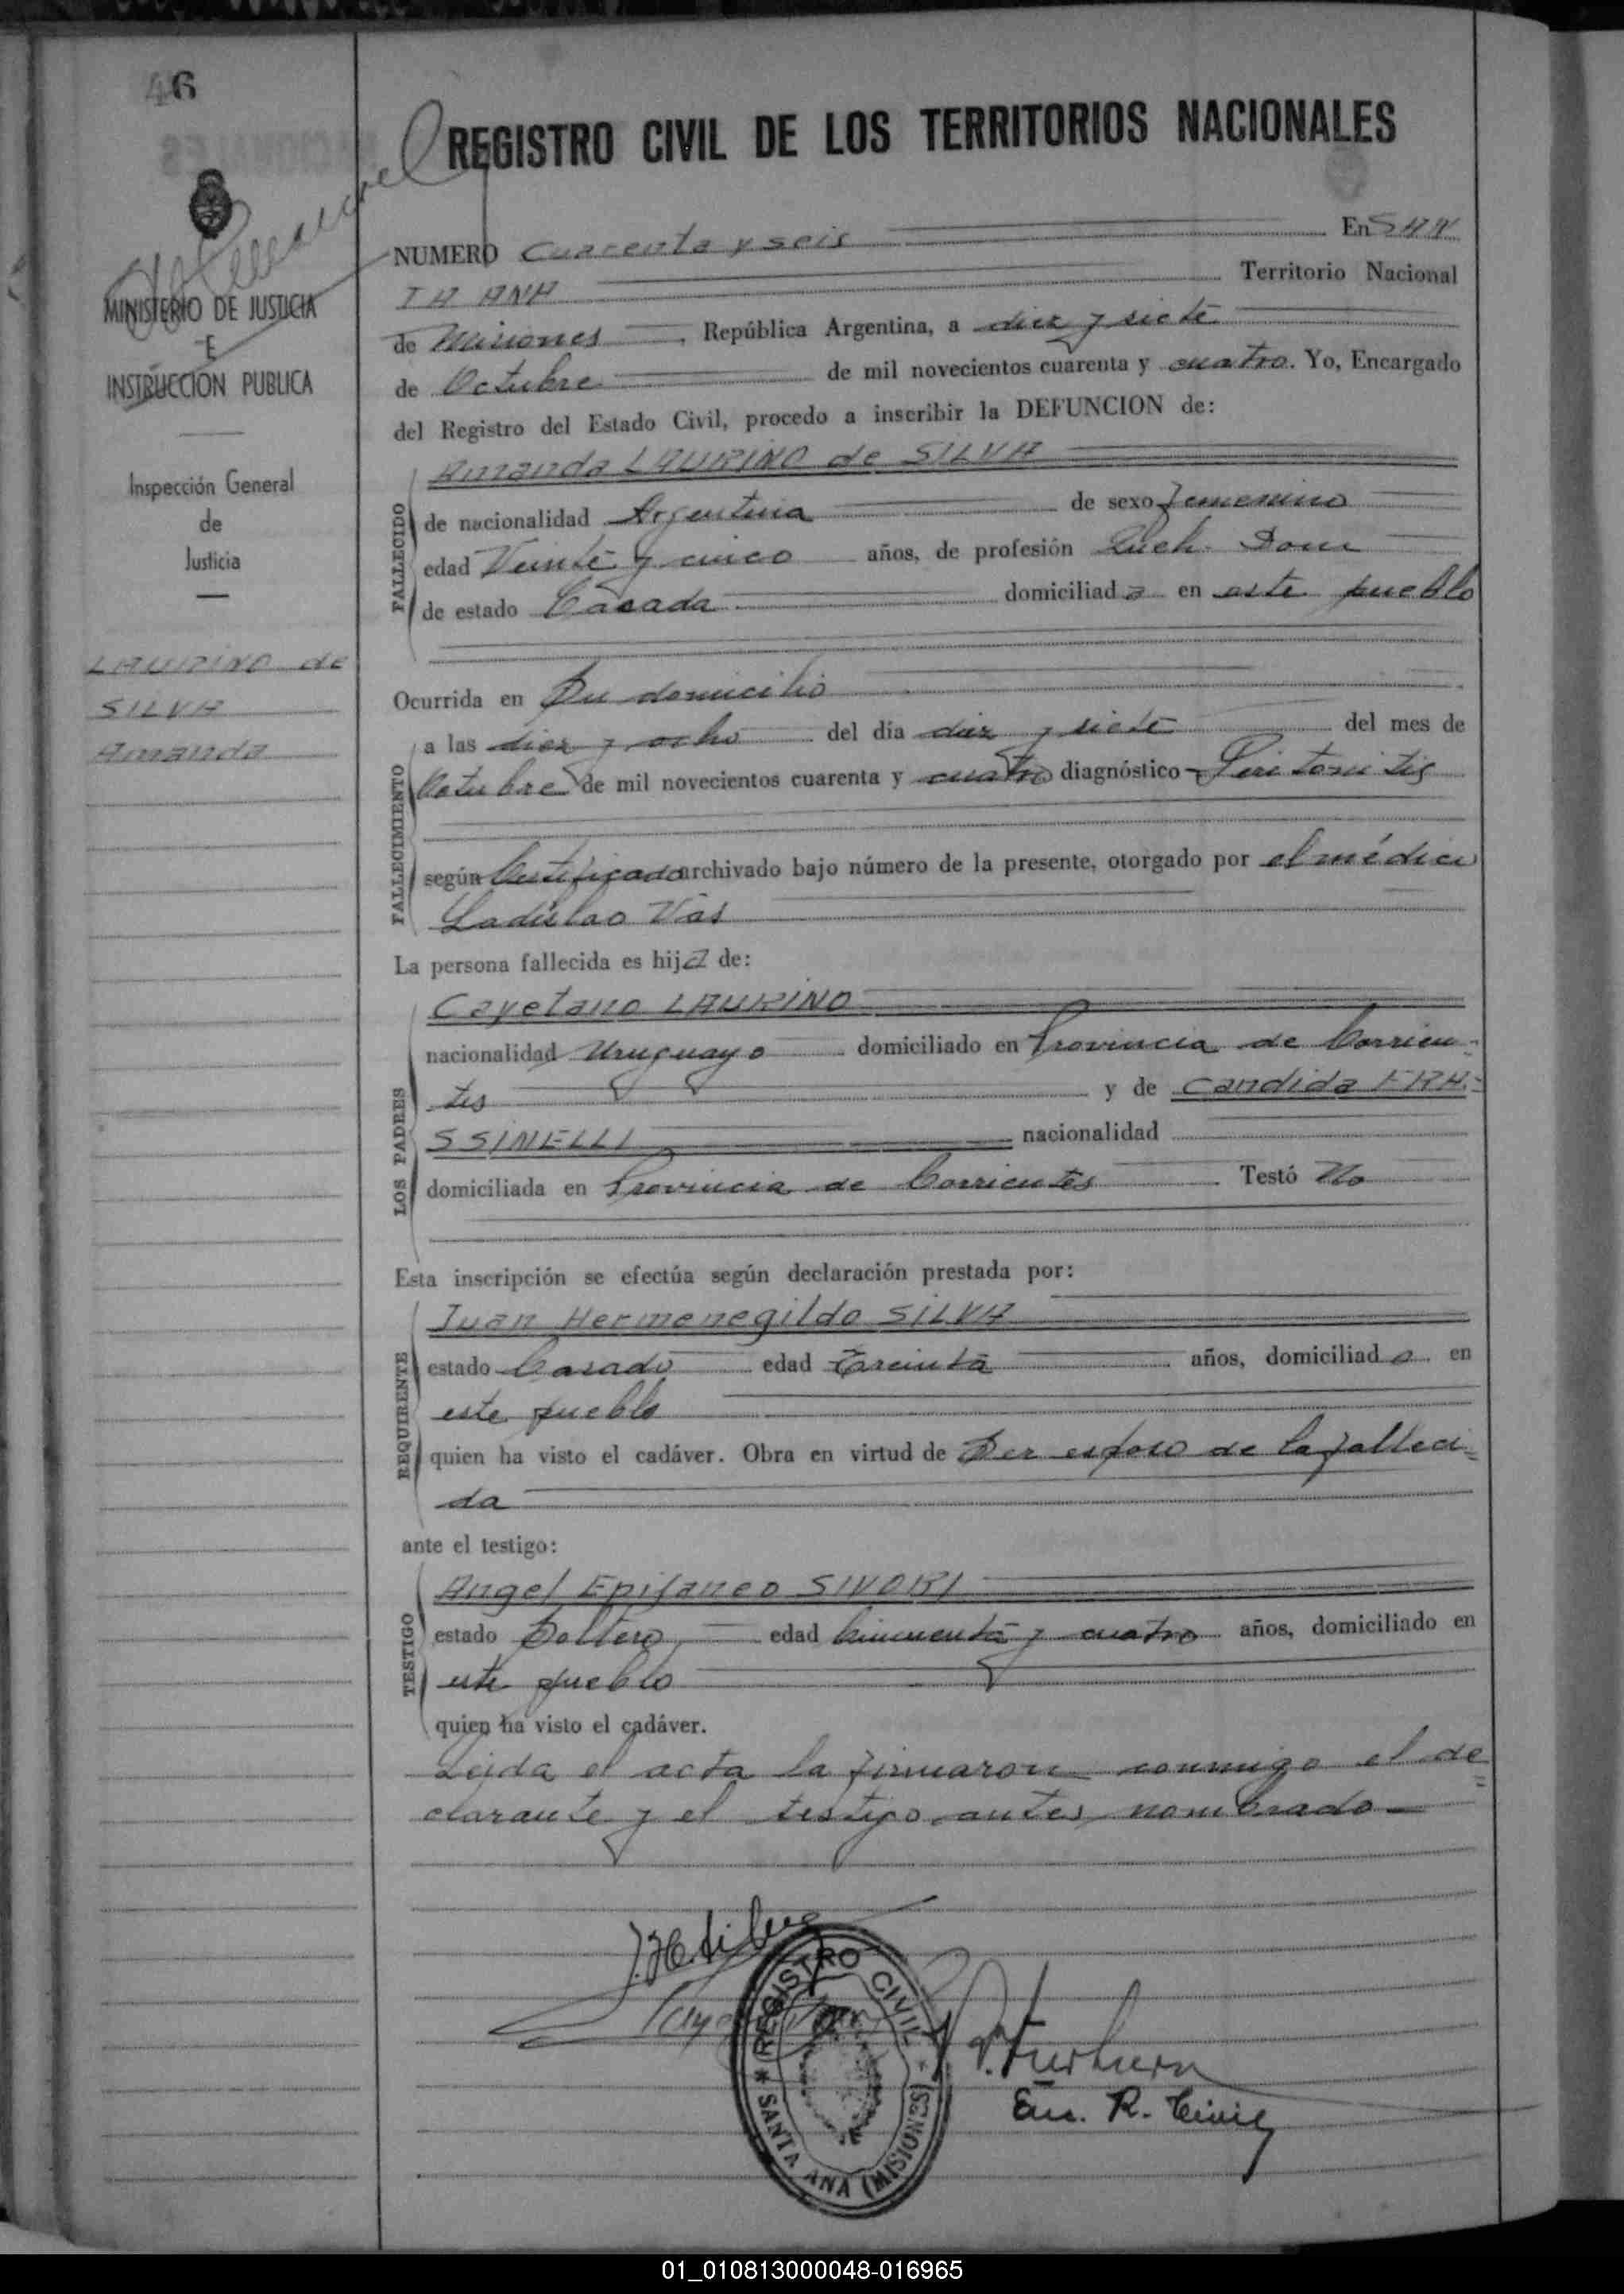 46
REGISTRO CIVIL DE LOS TERRITORIOS NACIONALES
MINISTERIO DE JUSTICIA
E
INSTRUCCION PUBLICA
Inspección General
de
Justicia
LAURINO de
SILVA
Amanda
NUMERO Cuarenta y seis En SAN
TA ANA Territorio Nacional
de Misiones, República Argentina, a diez y siete
de Octubre de mil novecientos cuarenta y cuatro. Yo, Encargado
del Registro del Estado Civil, procedo a inscribir la DEFUNCION de:
FALLECIDO
Amanda LAURINO de SILVA
de nacionalidad Argentina de sexo femenino
edad Veinte y cinco años, de profesión Queh. Dom
de estado Casada domiciliada en este pueblo
Ocurrida en Su domicilio
FALLECIMIENTO
a las diez y ocho del día diez y siete del mes de
Octubre de mil novecientos cuarenta y cuatro diagnóstico - Peritonitis
según Certificado archivado bajo número de la presente, otorgado por el médico
Ladislao Vas
La persona fallecida es hija de:
LOS PADRES
Cayetano LAURINO
nacionalidad Uruguayo domiciliado en Provincia de Corrien-
tes y de Candida FRA-
SSINELLI nacionalidad
domiciliada en Provincia de Corrientes Testó No
Esta inscripción se efectúa según declaración prestada por:
REQUIRENTE
Juan Hermenegildo SILVA
estado Casado edad Treinta años, domiciliado en
este pueblo
quien ha visto el cadáver. Obra en virtud de Ser esposo de la falleci=
da
ante el testigo:
TESTIGO
Angel Epifaneo SIVORI
estado Soltero, edad Cincuenta y cuatro años, domiciliado en
este pueblo
quien ha visto el cadáver.
Leida el acta la firmaron conmigo el de=
clarante y el testigo antes nombrado-
J. H. Silva
REGISTRO CIVIL
* SANTA ANA (MISIONES) *
Enc. R. Civil
01_010813000048-016965